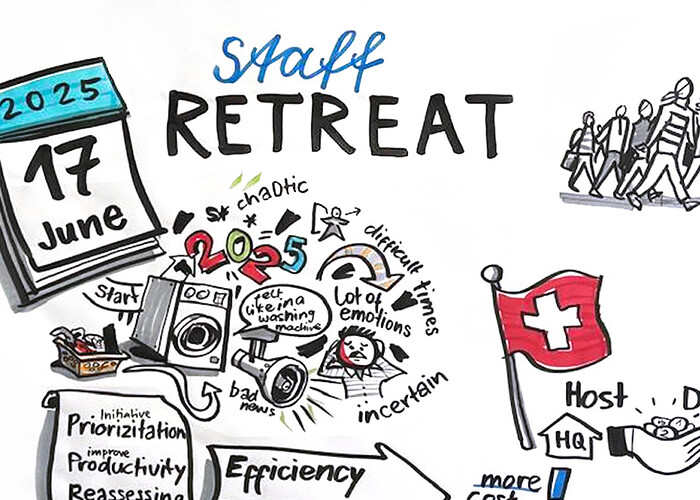 staff
RETREAT
2025
17
June
chaotic
2025
difficult times
Start
felt
like in a
washing
machine
Lot of
emotions
bad
news
incertain
Initialive
Priorizitation
improve
Productivity
Reassessing
Efficiency
Host
HQ
D
more
cost